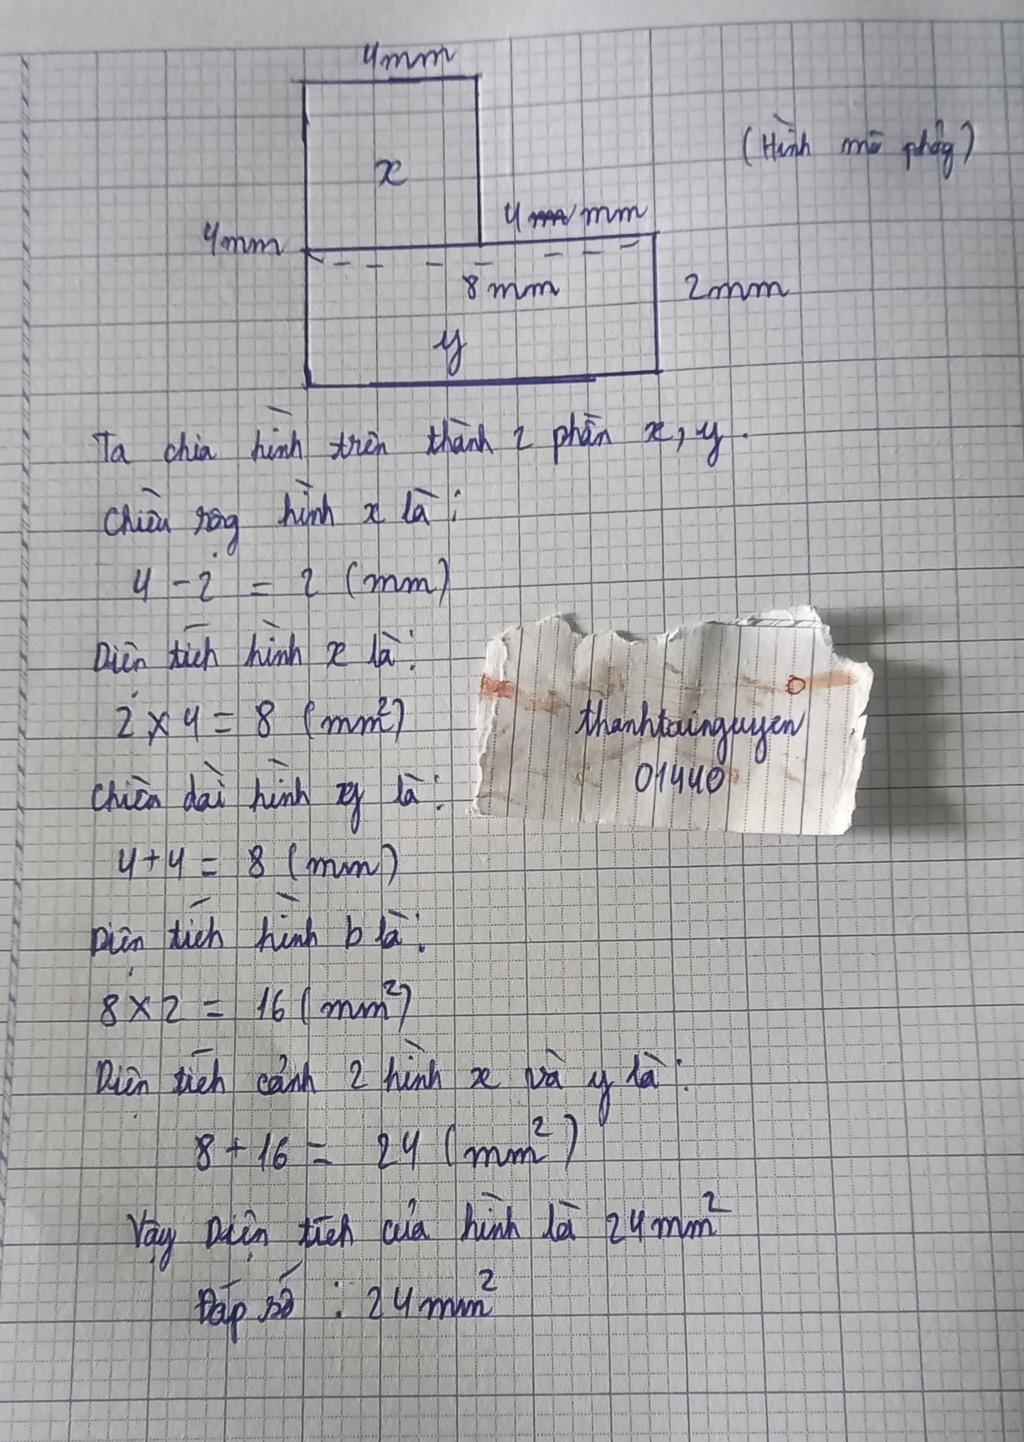 4mm
(Hình mô phỏng)
x
4mm
4 mm
8mm
2mm
y
Ta chia hình trên thành 2 phần x, y.
Chiều rộng hình x là:
4 - 2 = 2 (mm)
Diện tích hình x là:
2 x 4 = 8 (mm²)
thanhtainguyen
01440
Chiều dài hình y là:
4 + 4 = 8 (mm)
Diện tích hình b là:
8 x 2 = 16 (mm²)
Diện tích cảnh 2 hình x và y là:
8 + 16 = 24 (mm²)
Vậy Diện tích của hình là 24mm²
Đáp số : 24mm²